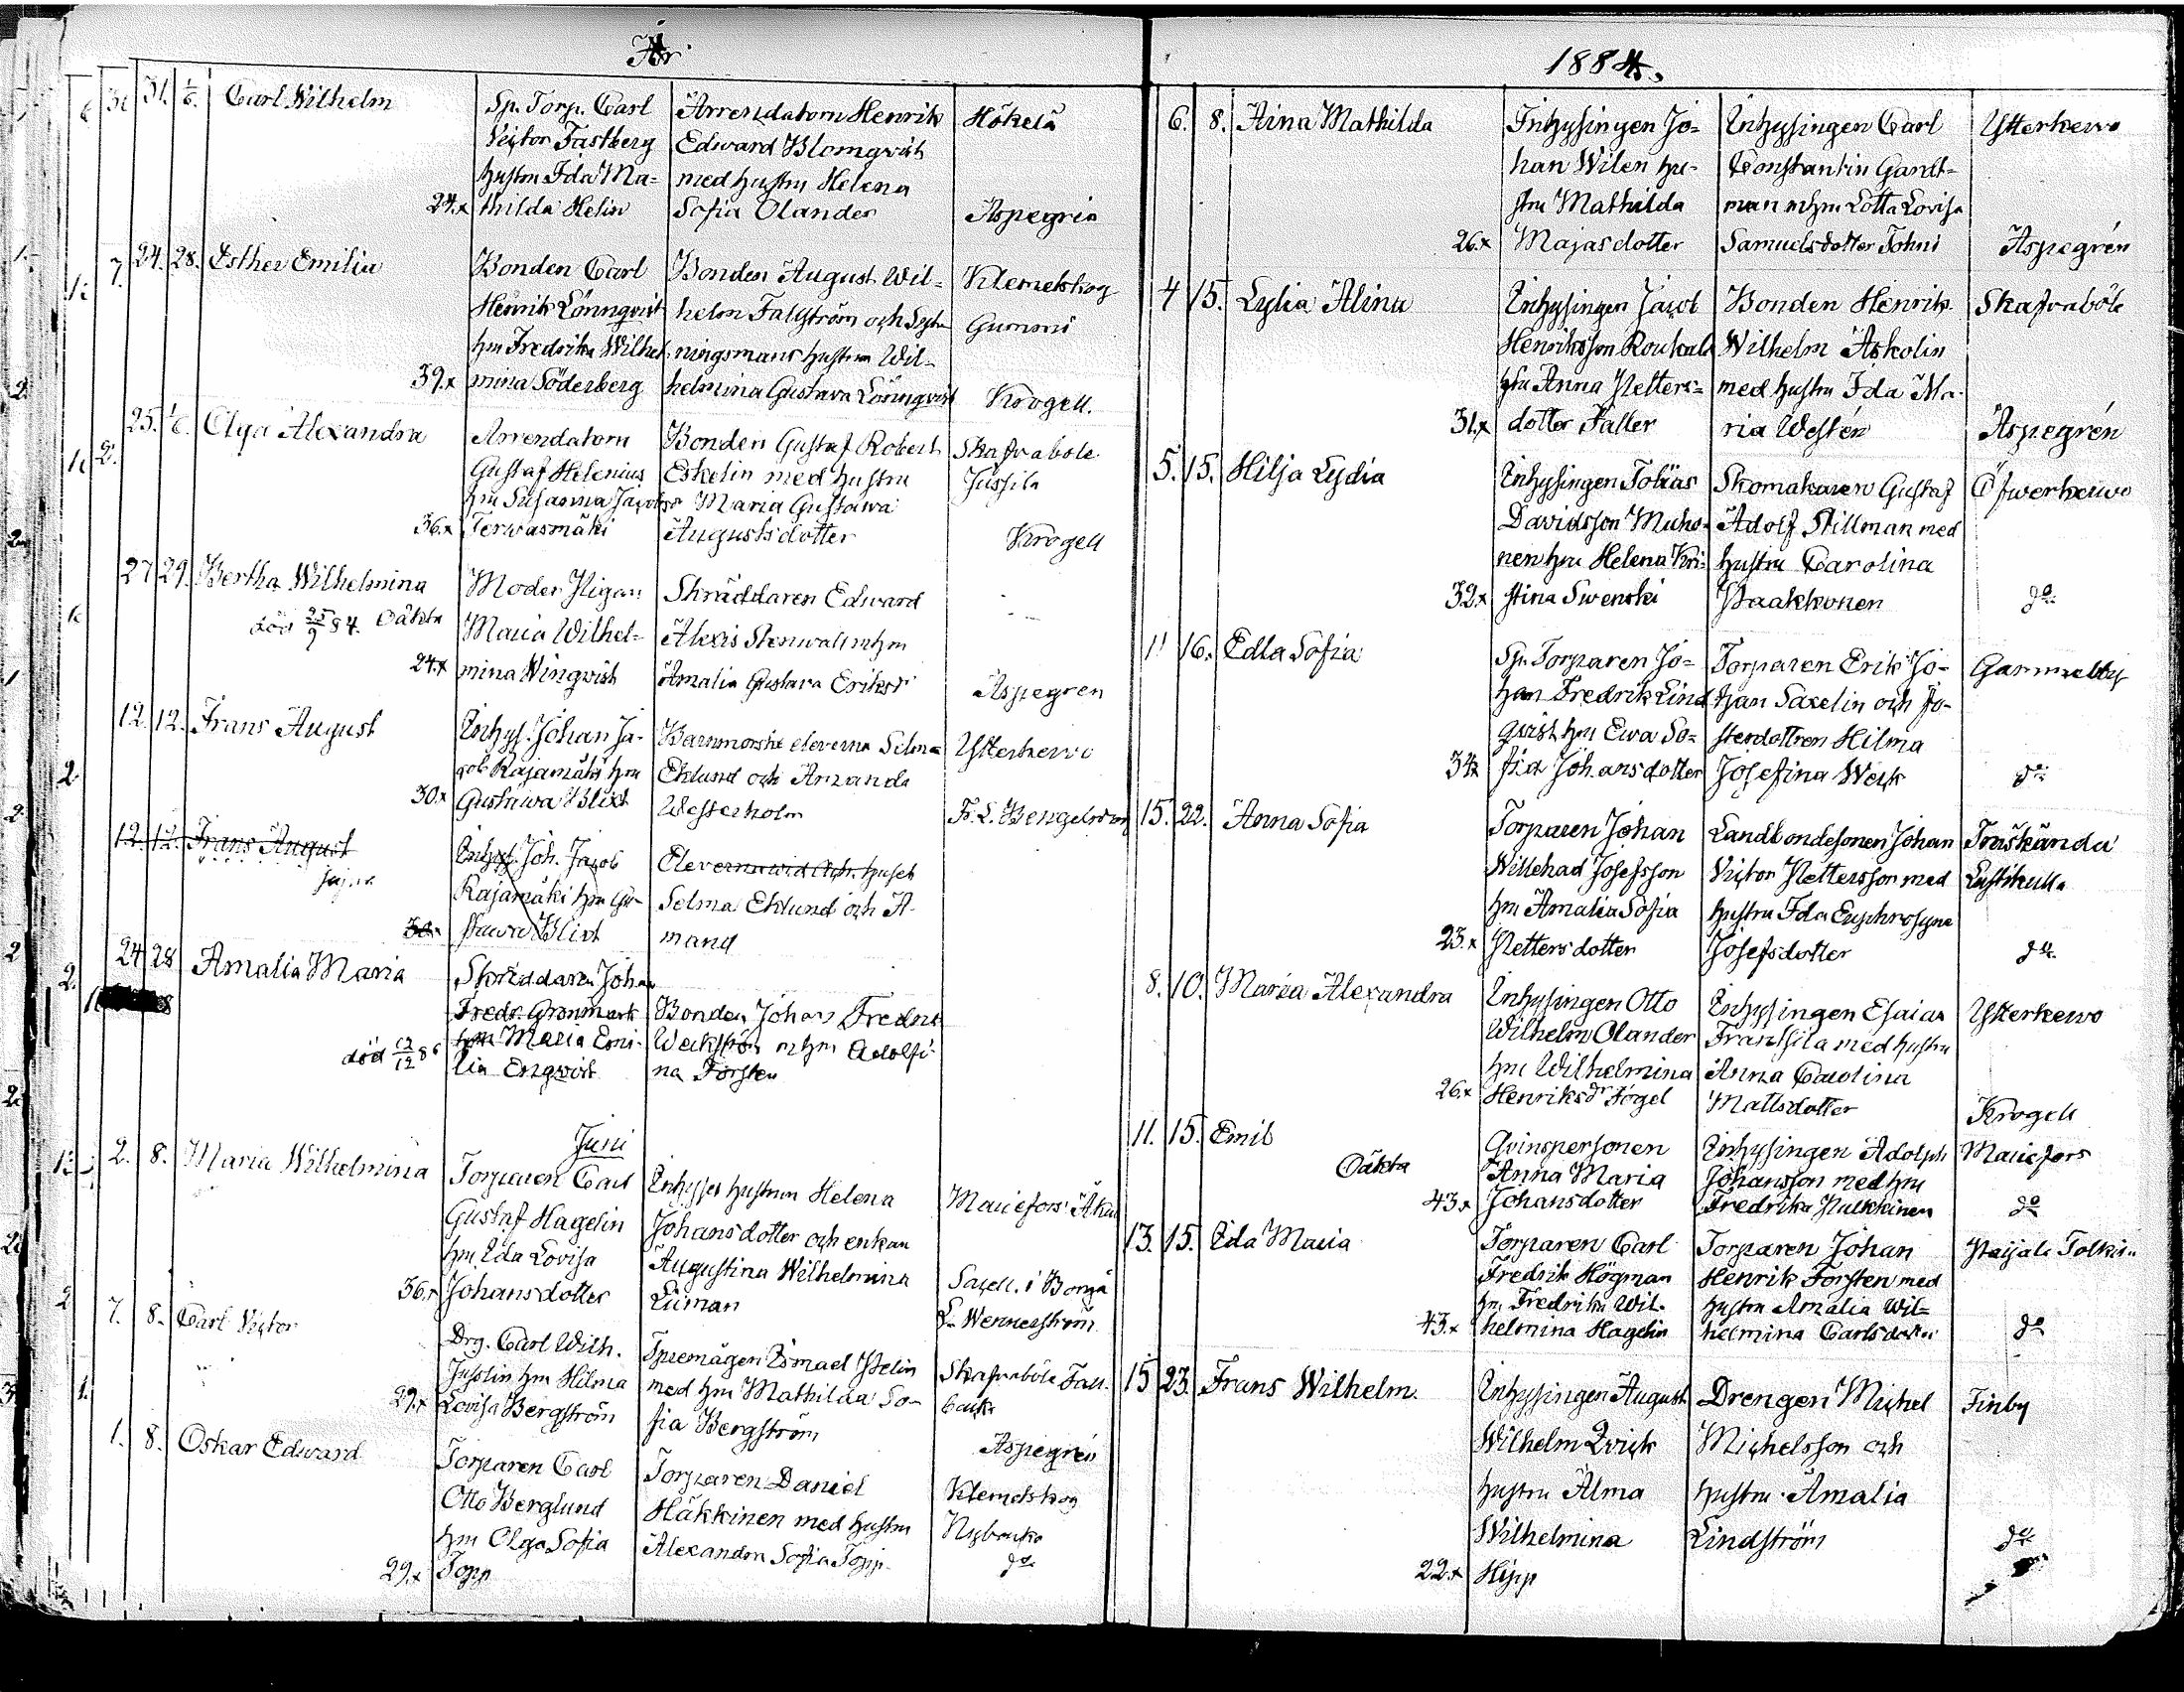 År
31. 1/6. Carl Wilhelm
Sp. Torp. Carl
Victor Fastberg
hustru Ida Ma=
24.x thilda Helin
Arrendatorn Henrik
Edward Blomqvist
med hustru Helena
Sofia Olander
Hökelä
Aspegrén
24. 28. Esther Emilia
Bonden Carl
Henrik Lönnqvist
hru Fredrika Wilhel
39.x mina Söderberg
Bonden August Wil=
helm Falström och
ningsmans hustrun Wil=
helmina Gustava Lönnqvist
Klemetskog
Gummi
Krogell.
25. Olga Alexandra
Arrendatorn
Gustaf Helenius
hru Susanna
36.x Terwasmäki
Bonden Gustaf Robert
Eskelin med hustru
Maria Gustawa
Augustsdotter
Skafvaböle
Jussila
Krogell
27 29. Bertha Wilhelmina
död 25/9 84. Oäkta
Moder Pigan
Maria Wilhel=
24.x mina Winqvist
Skräddaren Edward
Alexis Stenwall mhru
Amalia Gustava
Aspegren
12. 12. Frans August
Inhys. Johan Ja-
cob Rajamäki hru
30.x Gustawa Blixt
Barnmorske eleverna Selma
Eklund och Amanda
Westerholm
Ytterkervo
F. L. Bengelsdorff
12. 12. Frans August
Inhys. Joh. Jacob
Rajamäki hru Gu-
30.x stawa Blixt
Eleverna wid
Selma Eklund och A-
mand
24 28 Amalia Maria
död 12/12 86
Skräddaren Johan
Fredr. Gronmark
hru Maria Emi-
lia Enqvist
Bonden Johan Fredrik
Weckström mhru Adolfi-
na Forsten
Juni
2. 8. Maria Wilhelmina
Torparen Carl
Gustaf Hagelin
hru Ida Lovisa
36.x Johansdotter
Inhyses hustrun Helena
Johansdotter och enkan
Augustina Wilhelmina
Liiman
Mariefors
Sacell. i Borgå
L. Wennerström
7. 8. Carl Victor
Drg. Carl Wilh.
Jusslin hru Hilma
29.x Lovisa Bergström
Ismael Helin
med hru Mathilda So-
fia Bergström
Skafvaböle
backa
Aspegrén
1. 8. Oskar Edward
Torparen Carl
Otto Berglund
hru Olga Sofia
29.x Topp
Torparen Daniel
Häkkinen med hustru
Alexandra Sofia Topp
Klemetskog
Nybacka
do
1884.
6. 8. Aina Mathilda
Inhysingen Jo=
han Wilen hu-
stru Mathilda
26.x Majasdotter
Inhysingen Carl
Constantin Gardt=
man mhru Lotta Lovisa
Samuelsdotter Johni
Ytterkervo
Aspegrén
4 15. Lylia Alina
Inhysingen Jacob
Henriksson Roukala
hru Anna Petters=
31.x dotter Faller
Bonden Henrik
Wilhelm Askolin
med hustru Ida Ma-
ria Westén
Skafvaböle
Aspegrén
5. 15. Hilja Lydia
Inhysingen Tobias
Davidsson Muho-
nen hru Helena Kri-
32.x stina Swenski
Skomakaren Gustaf
Adolf Stillman med
hustru Carolina
Paakkonen
Öfwerkervo
do
11 16. Edla Sofia
Sp. Torparen Jo=
han Fredrik Lind
qvist hru Ewa So=
34x fia Johansdotter
Torparen Erik Jo-
han Saxelin och
sterdottren Hilma
Josefina Weck
Gammelby
do
15. 22. Anna Sofia
Torparen Johan
Willehad Josefsson
hru Amalia Sofia
23.x Pettersdotter
Landbondesonen Johan
Victor Pettersson med
hustru Ida Euphrosyne
Josefsdotter
Träskända
Lustikulla
do
8. 10. Maria Alexandra
Inhysingen Otto
Wilhelm Olander
hru Wilhelmina
26.x Henriksdr Fogel
Inhysingen Esaias
Franssila med hustru
Anna Carolina
Mattsdotter
Ytterkervo
Krogell
11. 15. Emil
Oäkta
Qvinspersonen
Anna Maria
43.x Johansdotter
Inhysingen Adolph
Johansson med hru
Fredrika Pulkkinen
Mariefors
do
13. 15. Ida Maria
Torparen Carl
Fredrik Högman
hru Fredrika Wil-
43.x helmina Hagelin
Torparen Johan
Henrik Forsten med
hustru Amalia Wil=
helmina Carlsdotter
Paijala
do
15 23. Frans Wilhelm.
Inhysingen August
Wilhelm Qvick
hustru Alma
Wilhelmina
22.x Hipp
Drengen Michel
Michelsson och
hustru Amalia
Lindström
Finby
do